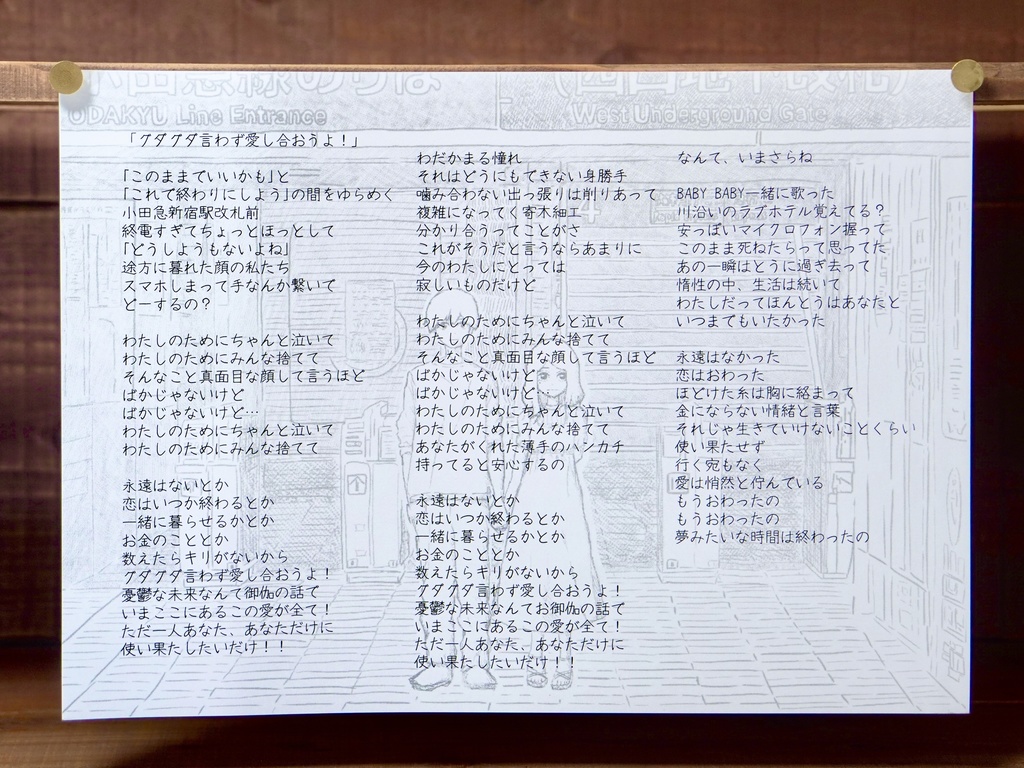 小田急線のりば
ODAKYU Line Entrance
(西口地下改札)
West Underground Gate
「グダグダ言わず愛し合おうよ！」
「このままでいいかも」と
「これで終わりにしよう」の間をゆらめく
小田急新宿駅改札前
終電すぎてちょっとほっとして
「どうしようもないよね」
途方に暮れた顔の私たち
スマホしまって手なんか繋いで
どーするの？
わたしのためにちゃんと泣いて
わたしのためにみんな捨てて
そんなこと真面目な顔して言うほど
ばかじゃないけど
ばかじゃないけど…
わたしのためにちゃんと泣いて
わたしのためにみんな捨てて
永遠はないとか
恋はいつか終わるとか
一緒に暮らせるかとか
お金のこととか
数えたらキリがないから
グダグダ言わず愛し合おうよ！
憂鬱な未来なんて御伽の話で
いまここにあるこの愛が全て！
ただ一人あなた、あなただけに
使い果たしたいだけ！！
わだかまる憧れ
それはどうにもできない身勝手
噛み合わない出っ張りは削りあって
複雑になってく寄木細工
分かり合うってことがさ
これがそうだと言うならあまりに
今のわたしにとっては
寂しいものだけど
わたしのためにちゃんと泣いて
わたしのためにみんな捨てて
そんなこと真面目な顔して言うほど
ばかじゃないけど
ばかじゃないけど
わたしのためにちゃんと泣いて
わたしのためにみんな捨てて
あなたがくれた薄手のハンカチ
持ってると安心するの
永遠はないとか
恋はいつか終わるとか
一緒に暮らせるかとか
お金のこととか
数えたらキリがないから
グダグダ言わず愛し合おうよ！
憂鬱な未来なんてお御伽の話で
いまここにあるこの愛が全て！
ただ一人あなた、あなただけに
使い果たしたいだけ！！
なんて、いまさらね
BABY BABY一緒に歌った
川沿いのラブホテル覚えてる？
安っぽいマイクロフォン握って
このまま死ねたらって思ってた
あの一瞬はとうに過ぎ去って
惰性の中、生活は続いて
わたしだってほんとうはあなたと
いつまでもいたかった
永遠はなかった
恋はおわった
ほどけた糸は胸に絡まって
金にならない情緒と言葉
それじゃ生きていけないことくらい
使い果たせず
行く宛もなく
愛は悄然と佇んでいる
もうおわったの
もうおわったの
夢みたいな時間は終わったの